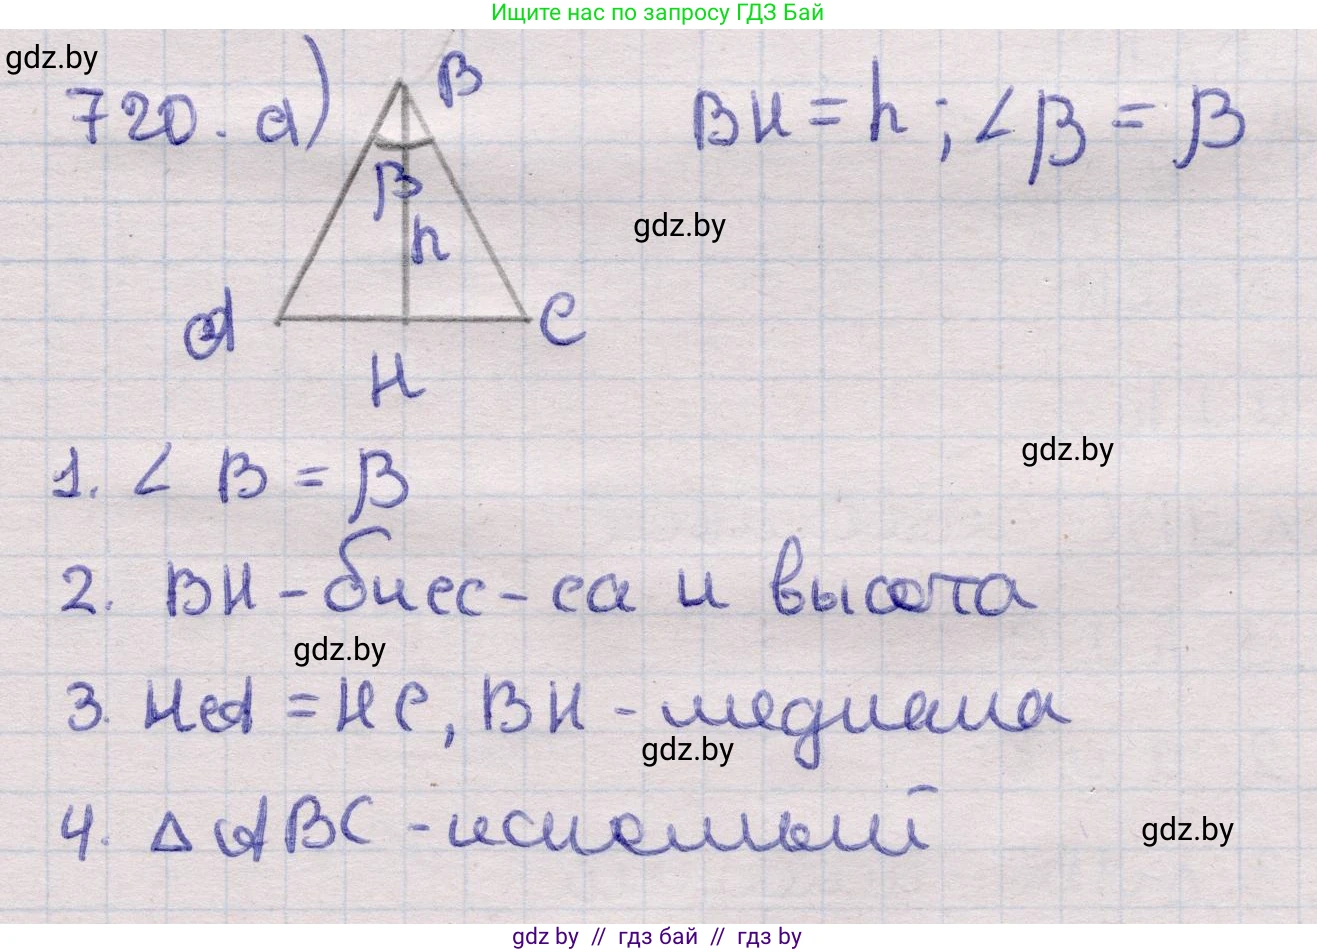 Ищите нас по запросу ГДЗ Бай
gdz.by
720. а)
B
BH = h ; ∠β = β
β
h
gdz.by
A
C
H
gdz.by
1. ∠ B = β
2. BH - бисс-са и высота
gdz.by
3. HA = HC, BH - медиана
gdz.by
4. △ ABC - искомый
gdz.by
gdz.by // гдз бай // гдз by